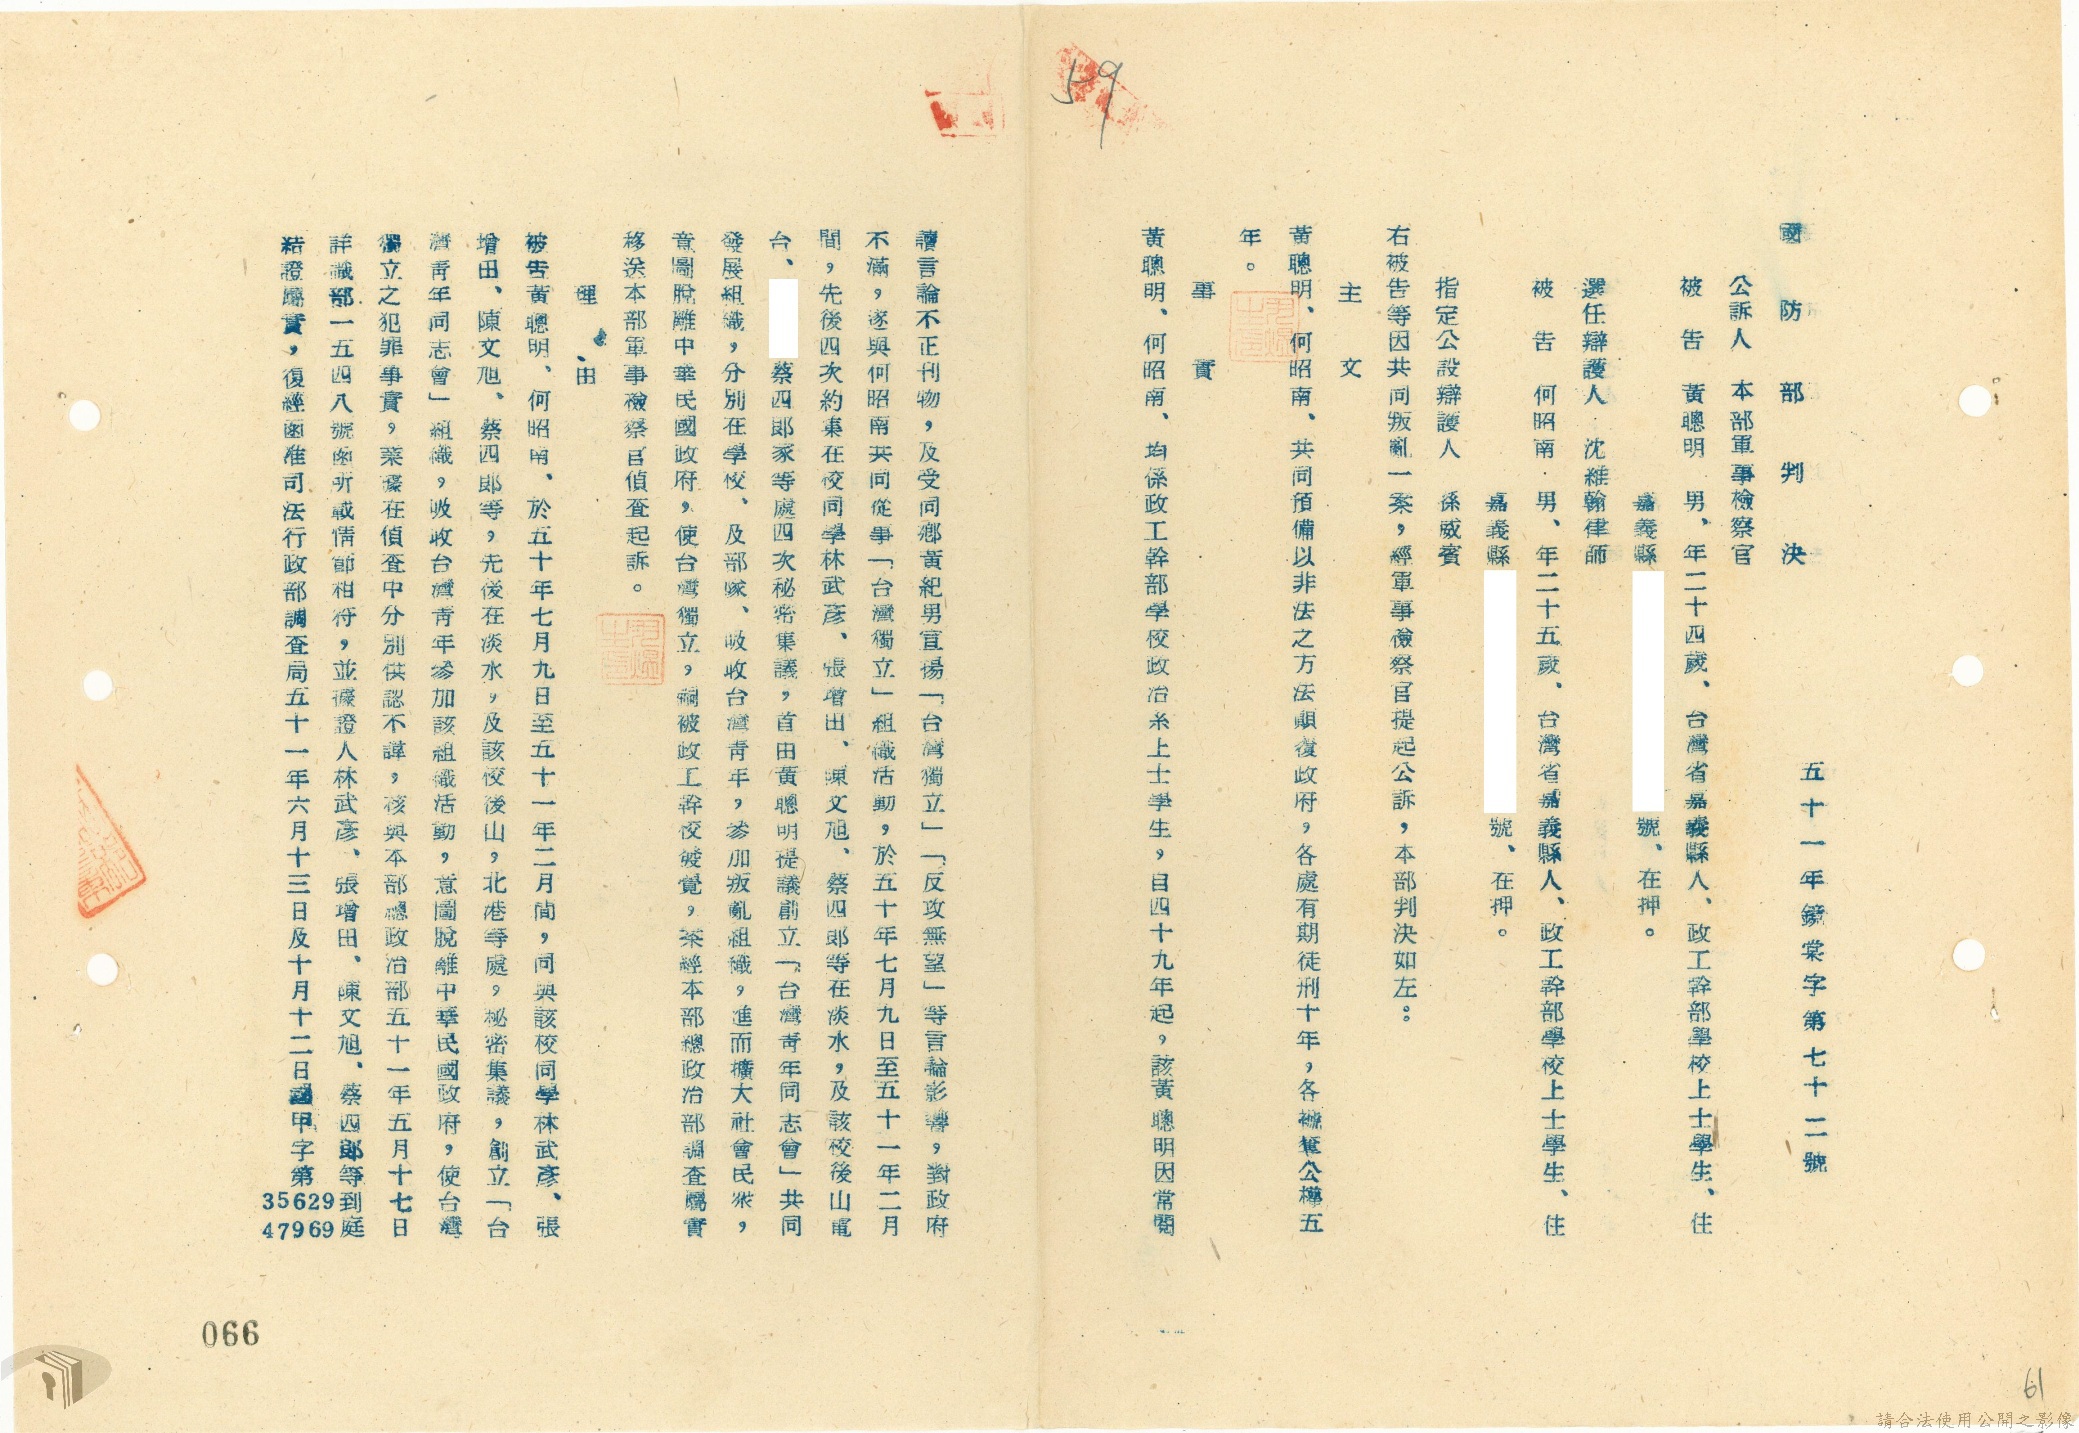 59
國防部判決
五十一年鏡棠字第七十二號
公訴人 本部軍事檢察官
被告 黃聰明 男、年二十四歲、台灣省嘉義縣人、政工幹部學校上士學生、住
嘉義縣 號、在押。
選任辯護人 沈維翰律師
被告 何昭南 男、年二十五歲、台灣省嘉義縣人、政工幹部學校上士學生、住
嘉義縣 號、在押。
指定公設辯護人 孫威賓
右被告等因共同叛亂一案,經軍事檢察官提起公訴,本部判決如左:
主文
黃聰明、何昭南、共同預備以非法之方法顛覆政府,各處有期徒刑十年,各褫奪公權五
年。
事實
黃聰明、何昭南、均係政工幹部學校政治系上士學生,自四十九年起,該黃聰明因常閱
讀言論不正刊物,及受同鄉黃紀男宣揚「台灣獨立」「反攻無望」等言論影響,對政府
不滿,遂與何昭南共同從事「台灣獨立」組織活動,於五十年七月九日至五十一年二月
間,先後四次約集在校同學林武彥、張增田、陳文旭、蔡四郎等在淡水,及該校後山電
台、 蔡四郎家等處四次秘密集議,首由黃聰明提議創立「台灣青年同志會」共同
發展組織,分別在學校、及部隊、吸收台灣青年,參加叛亂組織,進而擴大社會民眾,
意圖脫離中華民國政府,使台灣獨立,嗣被政工幹校發覺,案經本部總政治部調查屬實
移送本部軍事檢察官偵查起訴。
理由
被告黃聰明、何昭南、於五十年七月九日至五十一年二月間,同與該校同學林武彥、張
增田、陳文旭、蔡四郎等,先後在淡水,及該校後山,北港等處,秘密集議,創立「台
灣青年同志會」組織,吸收台灣青年參加該組織活動,意圖脫離中華民國政府,使台灣
獨立之犯罪事實,業據在偵查中分別供認不諱,核與本部總政治部五十一年五月十七日
詳識部一五四八號函所載情節相符,並據證人林武彥、張增田、陳文旭、蔡四郎等到庭
結證屬實,復經函准司法行政部調查局五十一年六月十三日及十月十二日 甲字第35629 47969
066
61
請合法使用公開之影像